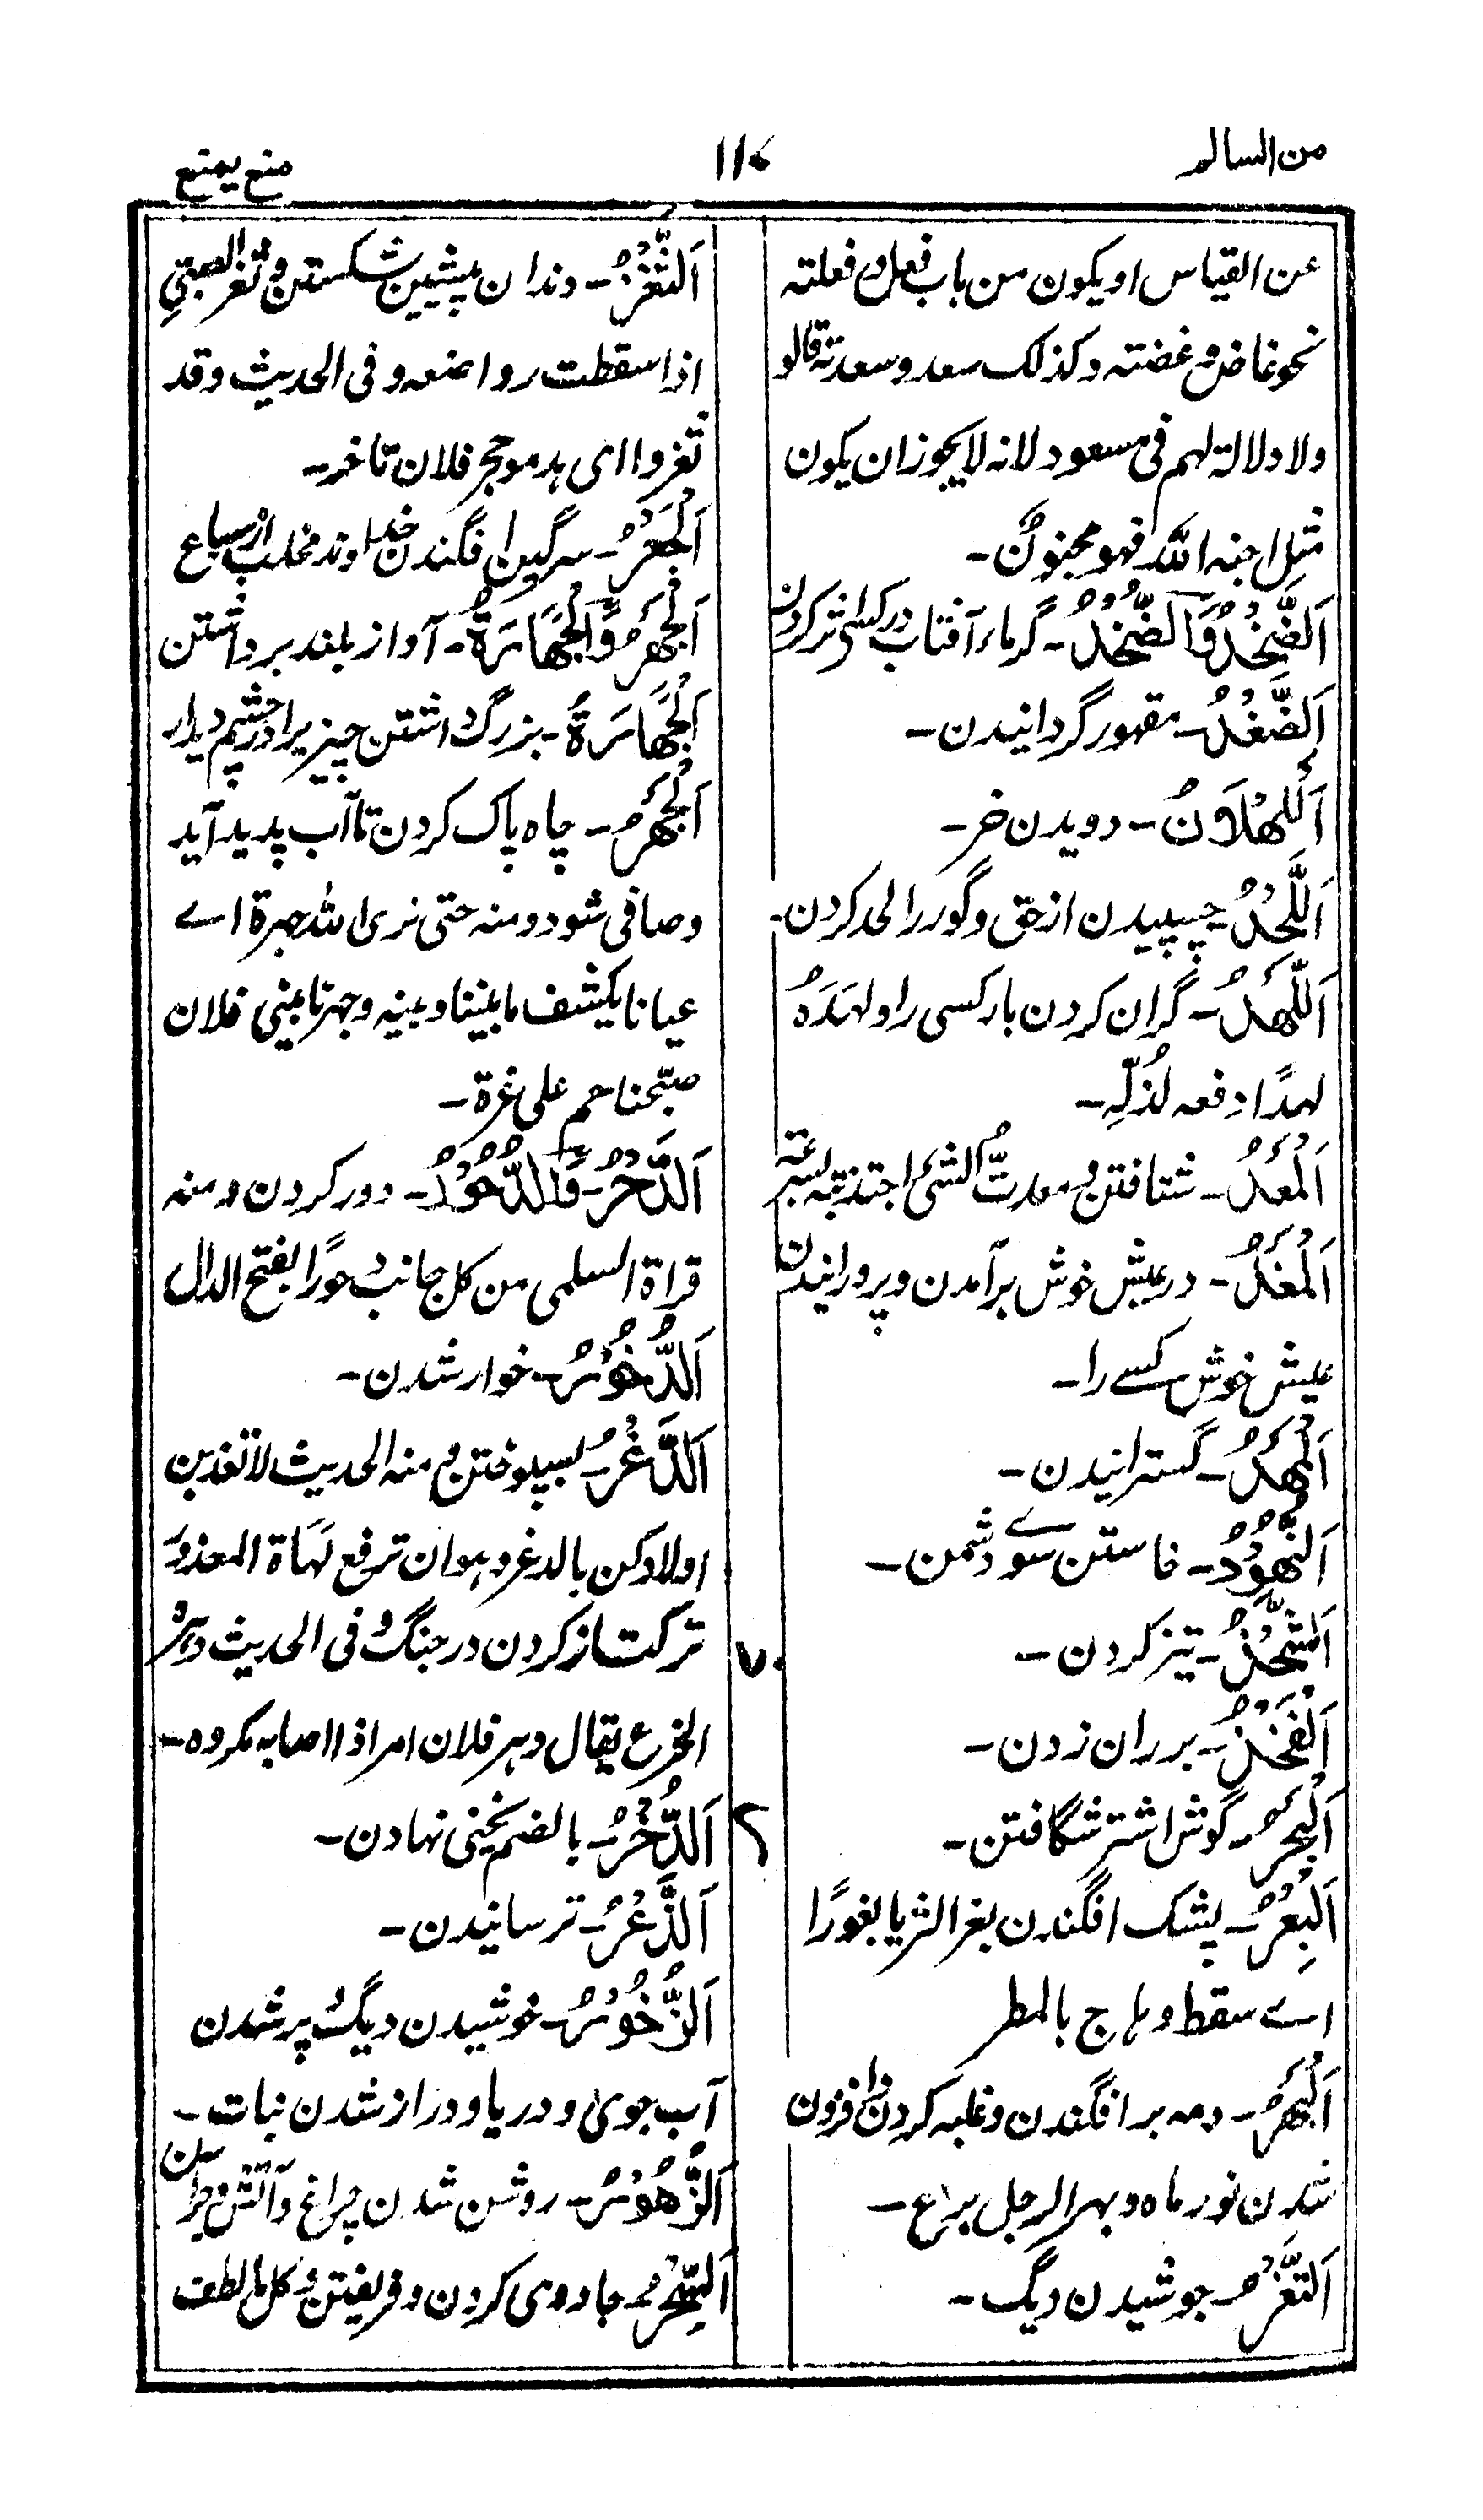 من السالم
۱۱۰
منع یمنع
عن القیاس او یکون من باب فعل و فعلته
نحو غاض و غضته و کذلک سعد و سعدته قالو
ولا دلالة لهم فی مسعود لانه لا یجوز ان یکون
مثل اجنه الله فهو مجنون۔
اَلضَّیْخَدُ وَالضَّخْدُ۔ گرماء آفتاب در کسی اثر کردن
اَلضَّغْدُ۔ مقهور گردانیدن۔
دویدن خر۔
اَللَّحْدُ۔ چسپیدن از حق و گور را لحد کردن۔
اَللَّهْدُ۔ گران کردن بار کسی را و لهَدَهُ
لهدًا دفعه لذُلّهِ۔
اَلْمَعْدُ۔ شتافتن و معدتُ الشیٔ اجتذبته بسرعته
اَلْمَغْدُ۔ در عیش خوش برآمدن و پرورانیدن
عیش خوش کسے را۔
اَلْمَهْدُ۔ گسترانیدن۔
اَلنُّهُوْدُ۔ خاستن سوے دشمن۔
اَلشَّحْذُ۔ تیز کردن۔
۷۰
اَلْفَخْذُ۔ بر ران زدن۔
اَلْبَحْرُ۔ گوش اشتر شگافتن۔
اَلْبَعْرُ۔ پشک افگندن بغر الثریا بغورًا
اے سقط و هاج بالمطر
اَلْبَهْرُ۔ دمه بر افگندن و غلبه کردن و افزون
شدن نور ماه و بهر الرجل برع۔
اَلتَّغْرُ۔ جوشیدن دیگ۔
اَلثَّغْرُ۔ دندان پیشین شکستن و ثغر الصبی
اذا سقطت رواضعه و فی الحدیث و قد
ثغروا ای هدمو حجر فلان تاخر۔
اَلْجَعْرُ۔ سرگین افگندن خداوند مخلب از سباع
اَلْجَهْرُ وَالْجَهَارَةُ۔ آواز بلند برداشتن
اَلْجَهَارَةُ۔ بزرگ داشتن چیزیرا در چشم دیدار
اَلْجَهْرُ۔ چاه پاک کردن تا آب پدید آید
و صافی شود و منه حتی نری الله جهرة اے
عیانا یکشف ما بیننا و بینه و جهرنا بنی فلان
صبّحناهم علی غرة۔
اَلدَّحْرُ وَالدُّحُوْرُ۔ دور کردن و منه
قراة السلمی من کل جانب دحورًا بفتح الدال
اَلدُّخُوْرُ۔ خوار شدن۔
اَلدَّغْرُ۔ بسپوختن و منه الحدیث لا تعذبن
اولادکن بالدغر و هو ان ترفع لهَاة المعذور
ترکتاز کردن در جنگ و فی الحدیث
الخرع یقال دهر فلان امر اذا اصابه مکروه۔
۲
اَلذُّخْرُ۔ بالضم یخنی نهادن۔
اَلذَّعْرُ۔ ترسانیدن۔
اَلزُّخُوْرُ۔ خوشیدن دیگ و پر شدن
آب جوی و دریا و دراز شدن نبات۔
اَلزُّهُوْرُ۔ روشن شدن چراغ و آتش و
اَلسِّحْرُ۔ جادوی کردن و فریفتن و کل ما لطف